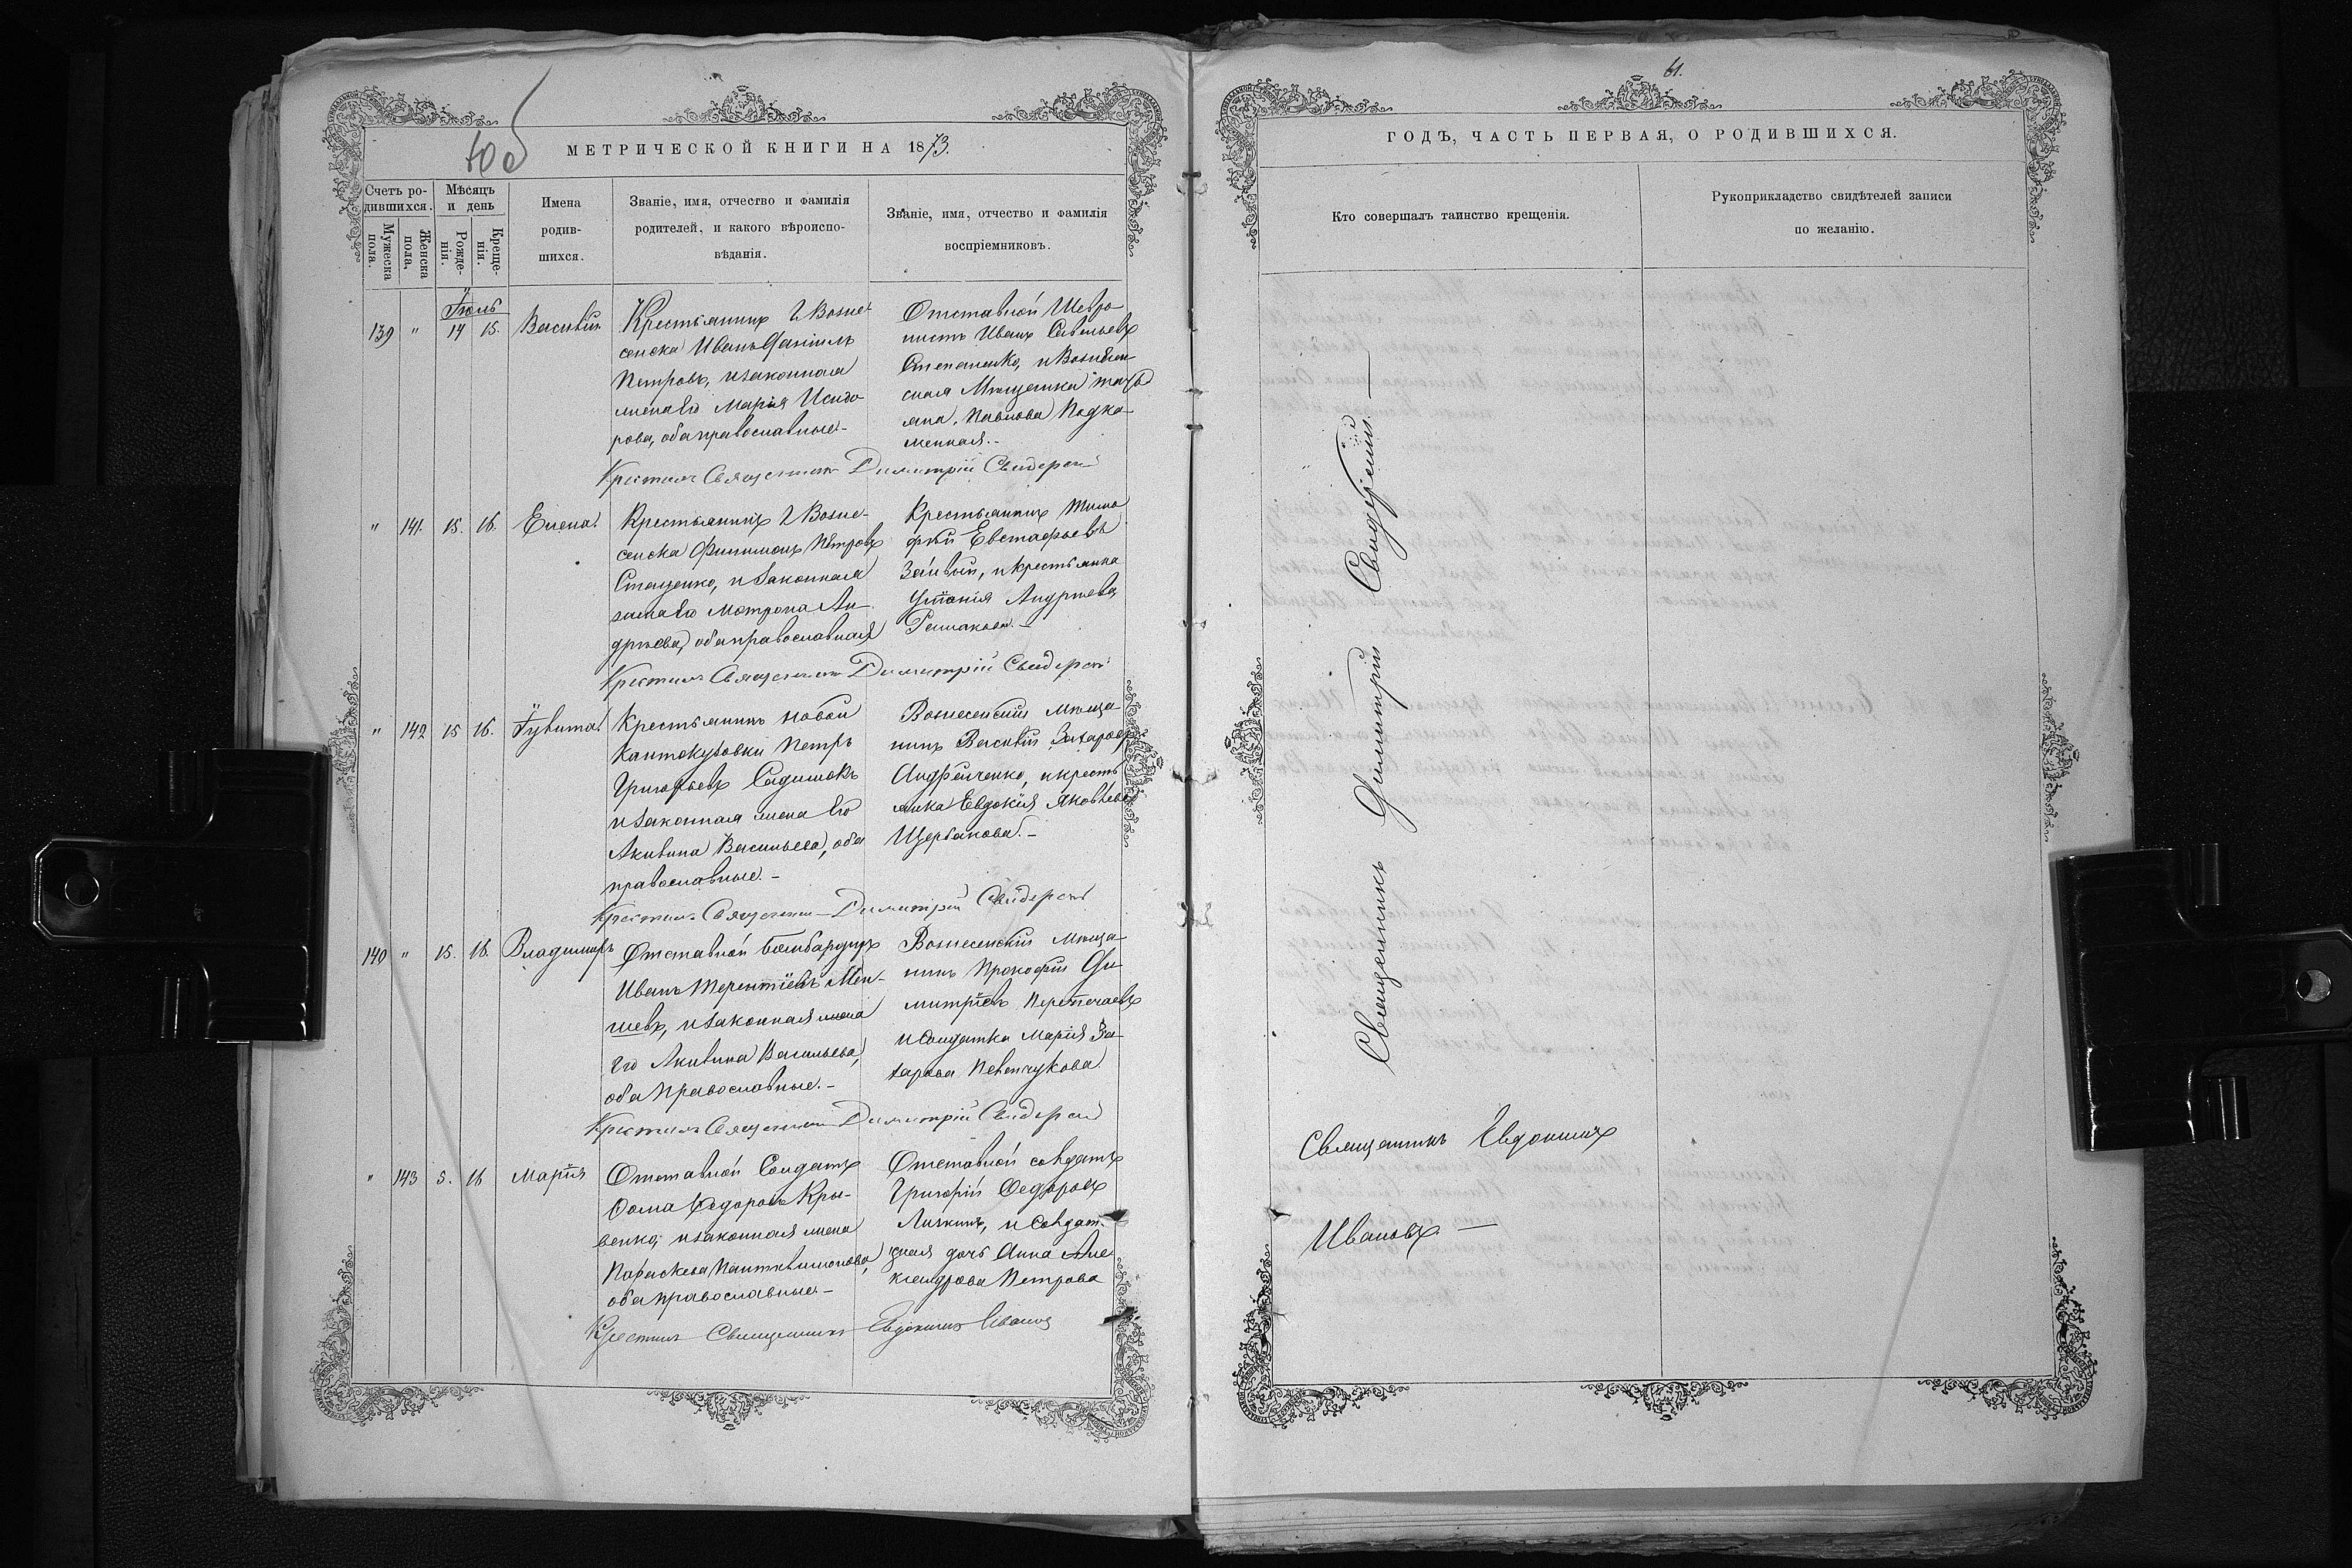 61.
МЕТРИЧЕСКОЙ КНИГИ НА 1873.
Счетъ ро-
дившихся.
Мужеска
пола.
Женска
пола.
Мѣсяцъ
и день
Рожде-
нія.
Креще-
нія.
Имена
родив-
шихся.
Званіе, имя, отчество и фамилія
родителей, и какого вѣроиспо-
вѣданія.
Званіе, имя, отчество и фамилія
воспріемниковъ.
Іюль
139 " 14 15. Василій
Крестьянинъ г Возне-
сенска Иванъ Даніилъ
Петровъ, и законная
жена его Марія Исидо-
рова, оба православные.-
Отставной Шевро-
нистъ Иванъ Савельевъ
Степаненко, и Вознесен-
ская Мѣщанка
яна, Павлова Подка-
менная.-
Крестилъ Священникъ Димитрій Свидерскій
" 141. 15. 16. Елена.
Крестьянинъ г Возне-
сенска Филимонъ Петровъ
Стаценко, и законная
жена его Матрона Ан-
дреева, оба православная
Крестьянинъ Тимо
фей Евстафьевъ
и крестьянка
Устанія Андреева
Крестилъ Священникъ Димитрій Свидерскій
" 142 15 16. Іулита.
Крестьянинъ новой
Кантокузовки Петръ
Григорьевъ Садишокъ
и законная жена его
Акивина Васильева, оба
православные.-
Вознесенскій Мѣща-
нинъ Василій Захаровъ
Андрейченко, и кресть
янка Евдокія Яковлева
Щербакова.-
Крестилъ Священникъ Димитрій Свидерскій
140 " 15. 16. Владимиръ
Отставной бомбардиръ
Иванъ Терентіевъ Мен-
шевъ, и законная жена
его Акивина Васильева,
оба православные.-
Вознесенскій Мѣща-
нинъ Прокофій Ди-
митріевъ Перепечаевъ
и Солдатка Марія За-
харова Певенчукова.
Крестилъ Священникъ Димитрій Свидерскій
" 143 5. 16 Марія
Отставной Солдатъ
Фома Федоровъ Кры-
венко, и законная жена
Параскева Пантелимонова,
оба православные.-
Отставной солдатъ
Григорій Федоровъ
Личкинъ, и Солдат-
ская дочь Анна Але
ксандрова Петрова
Крестилъ Священникъ Евдокимъ Ивановъ
ГОДЪ, ЧАСТЬ ПЕРВАЯ, О РОДИВШИХСЯ.
Кто совершалъ таинство крещенія.
Рукоприкладство свидѣтелей записи
по желанію.
Священникъ Димитрій Свидерскій.-
Священникъ Евдокимъ
Ивановъ.-